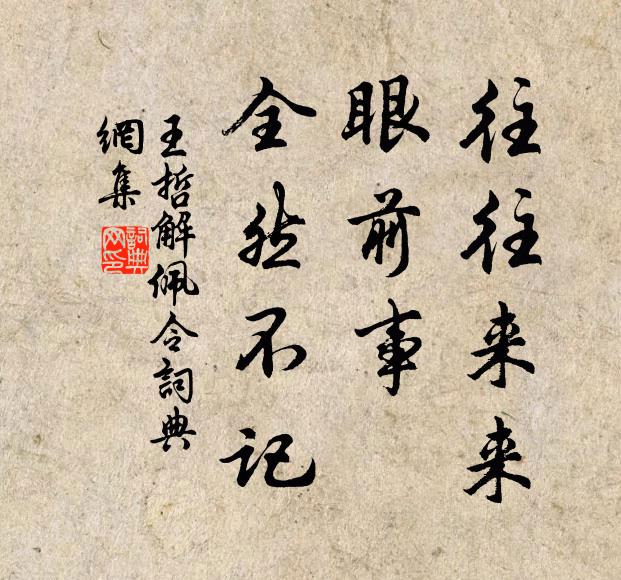 往往来来
眼前事
全然不记
王哲解佩令詞典
網集
詞典
网印